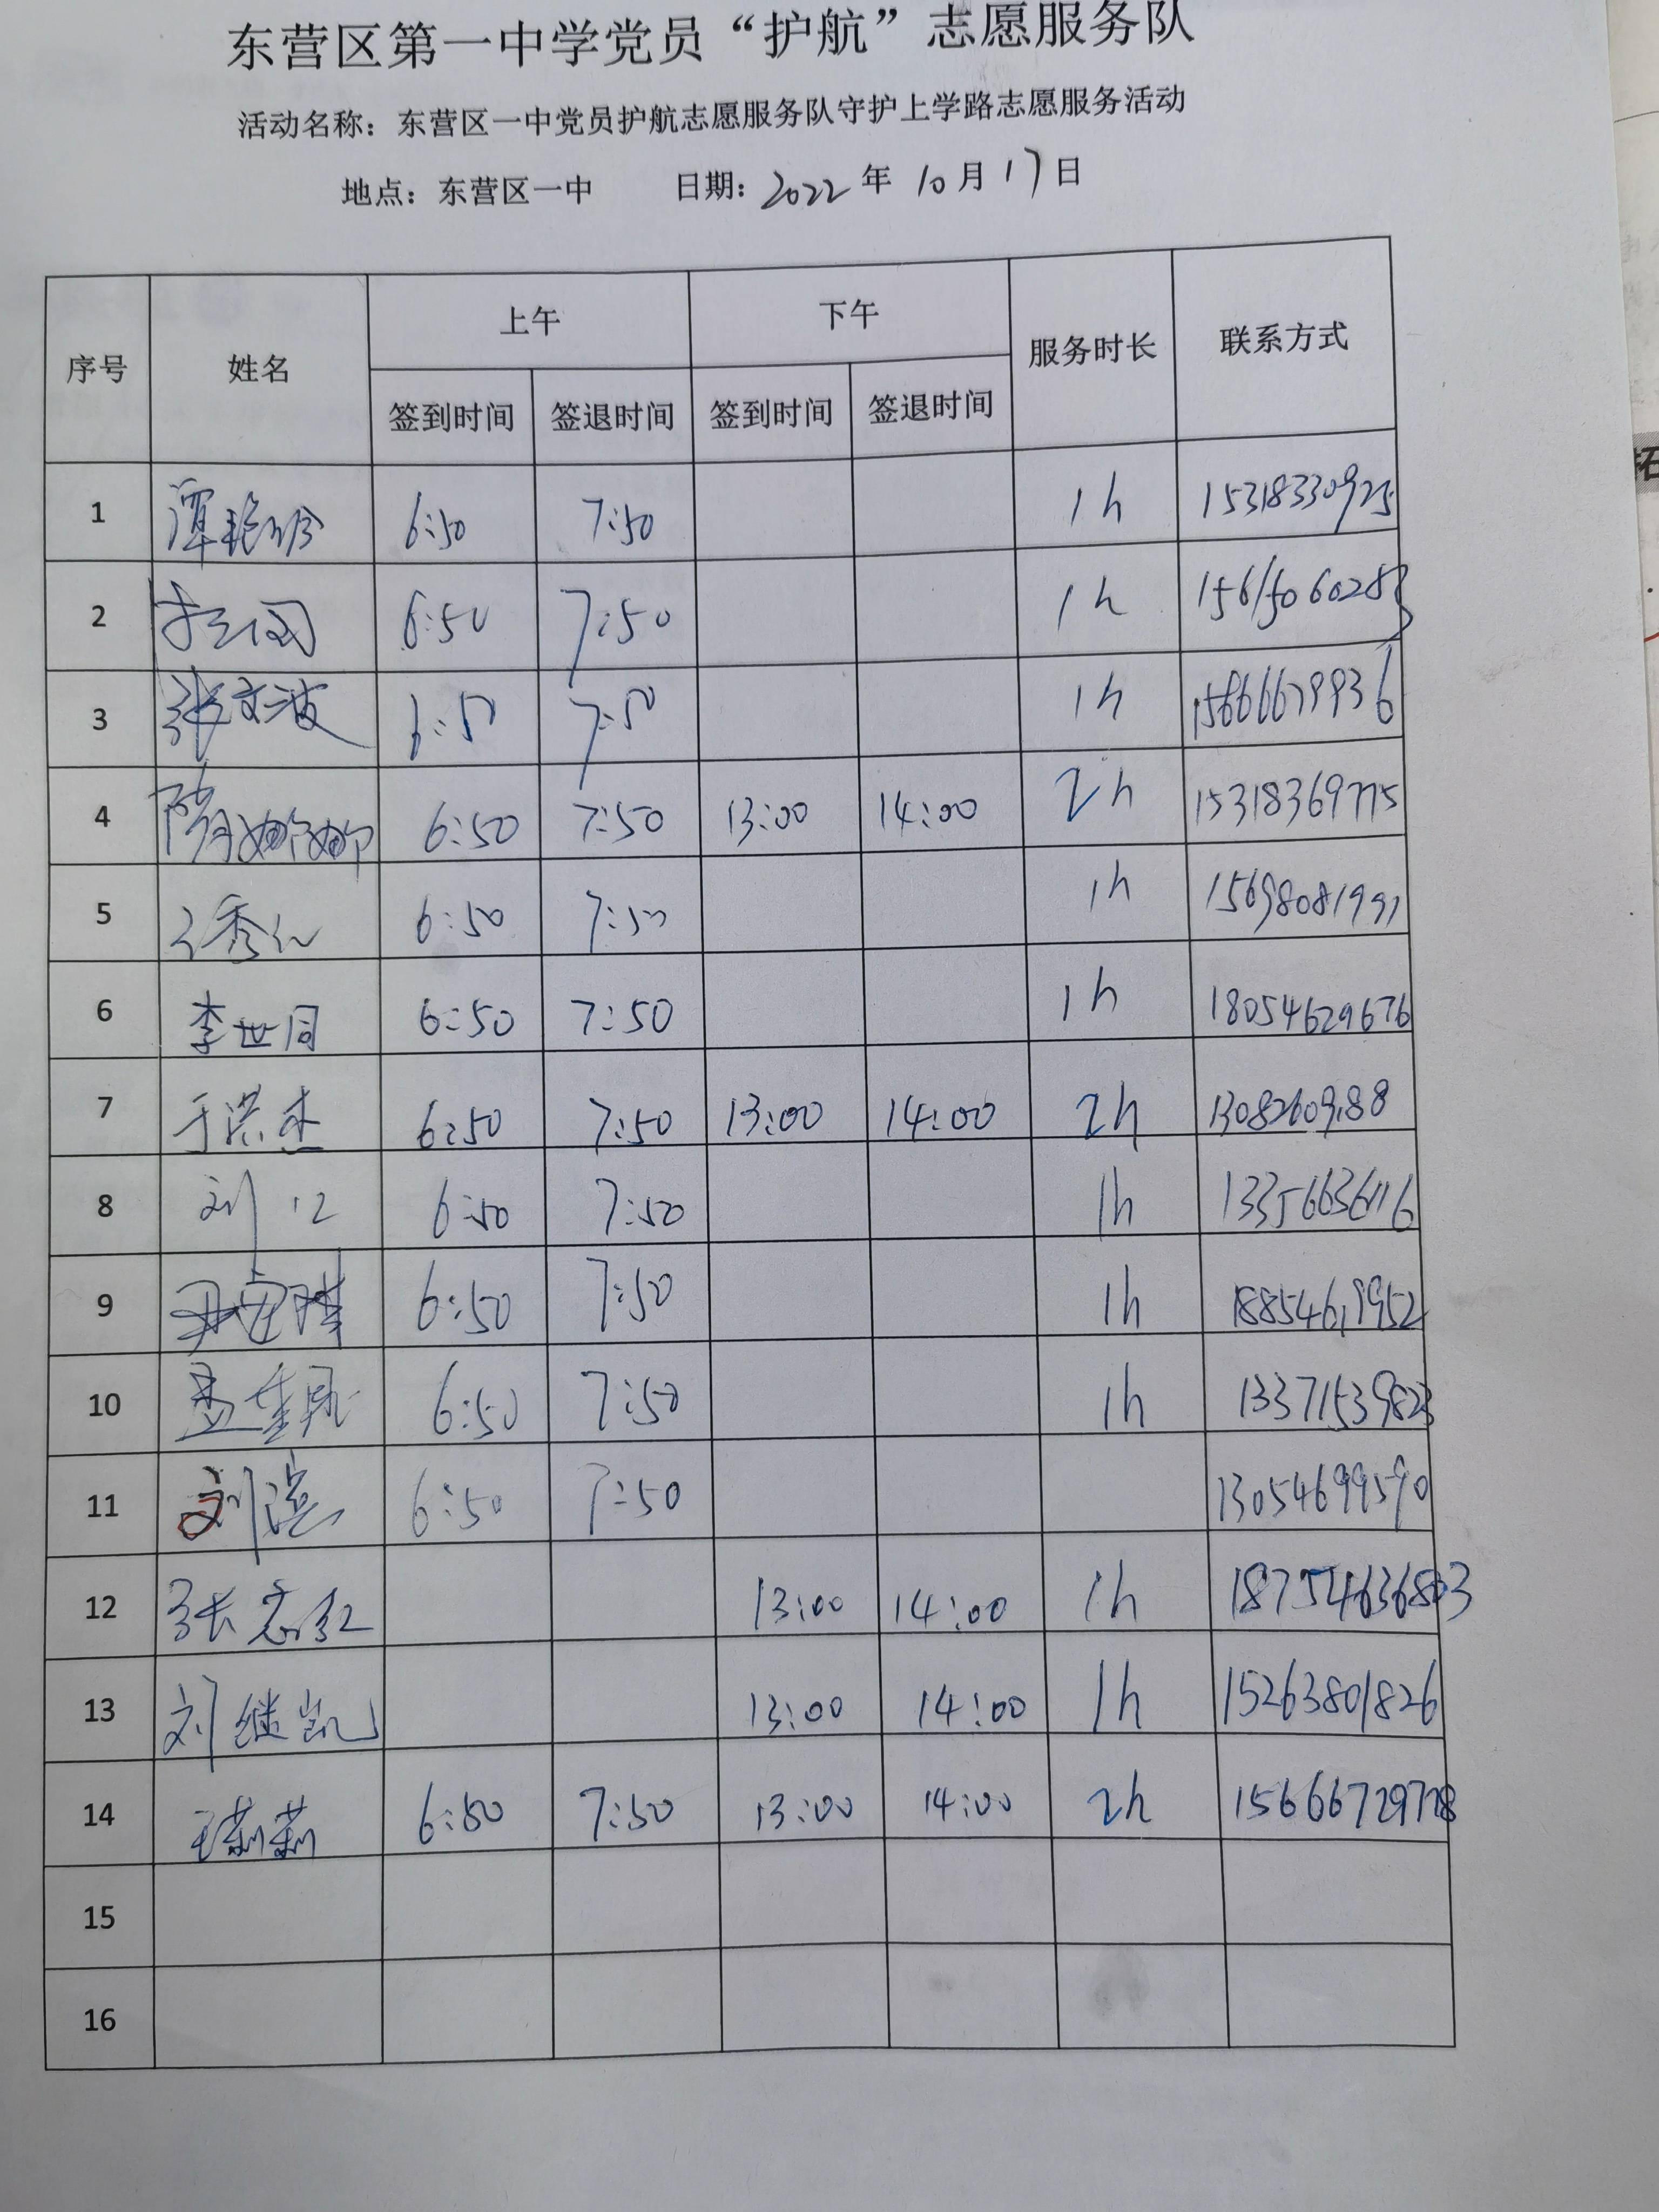 东营区第一中学党员“护航”志愿服务队
活动名称：东营区一中党员护航志愿服务队守护上学路志愿服务活动
地点：东营区一中 日期：2022年10月17日
序号 姓名 上午 下午 服务时长 联系方式
签到时间 签退时间 签到时间 签退时间
1 6:50 7:50 1h 15318330925
2 6:50 7:50 1h 15615060283
3 张文波 6:50 7:50 1h 15866679936
4 隋娜娜 6:50 7:50 13:00 14:00 2h 15318369775
5 6:50 7:50 1h 15698081991
6 李世同 6:50 7:50 1h 18054629676
7 于洪杰 6:50 7:50 13:00 14:00 2h 13082609188
8 6:50 7:50 1h 13356636116
9 6:50 7:50 1h 18854619952
10 6:50 7:50 1h 13371539823
11 刘滨 6:50 7:50 13054699590
12 13:00 14:00 1h
13 刘继凯 13:00 14:00 1h 15263801826
14 王莉莉 6:50 7:50 13:00 14:00 2h 15666729778
15
16